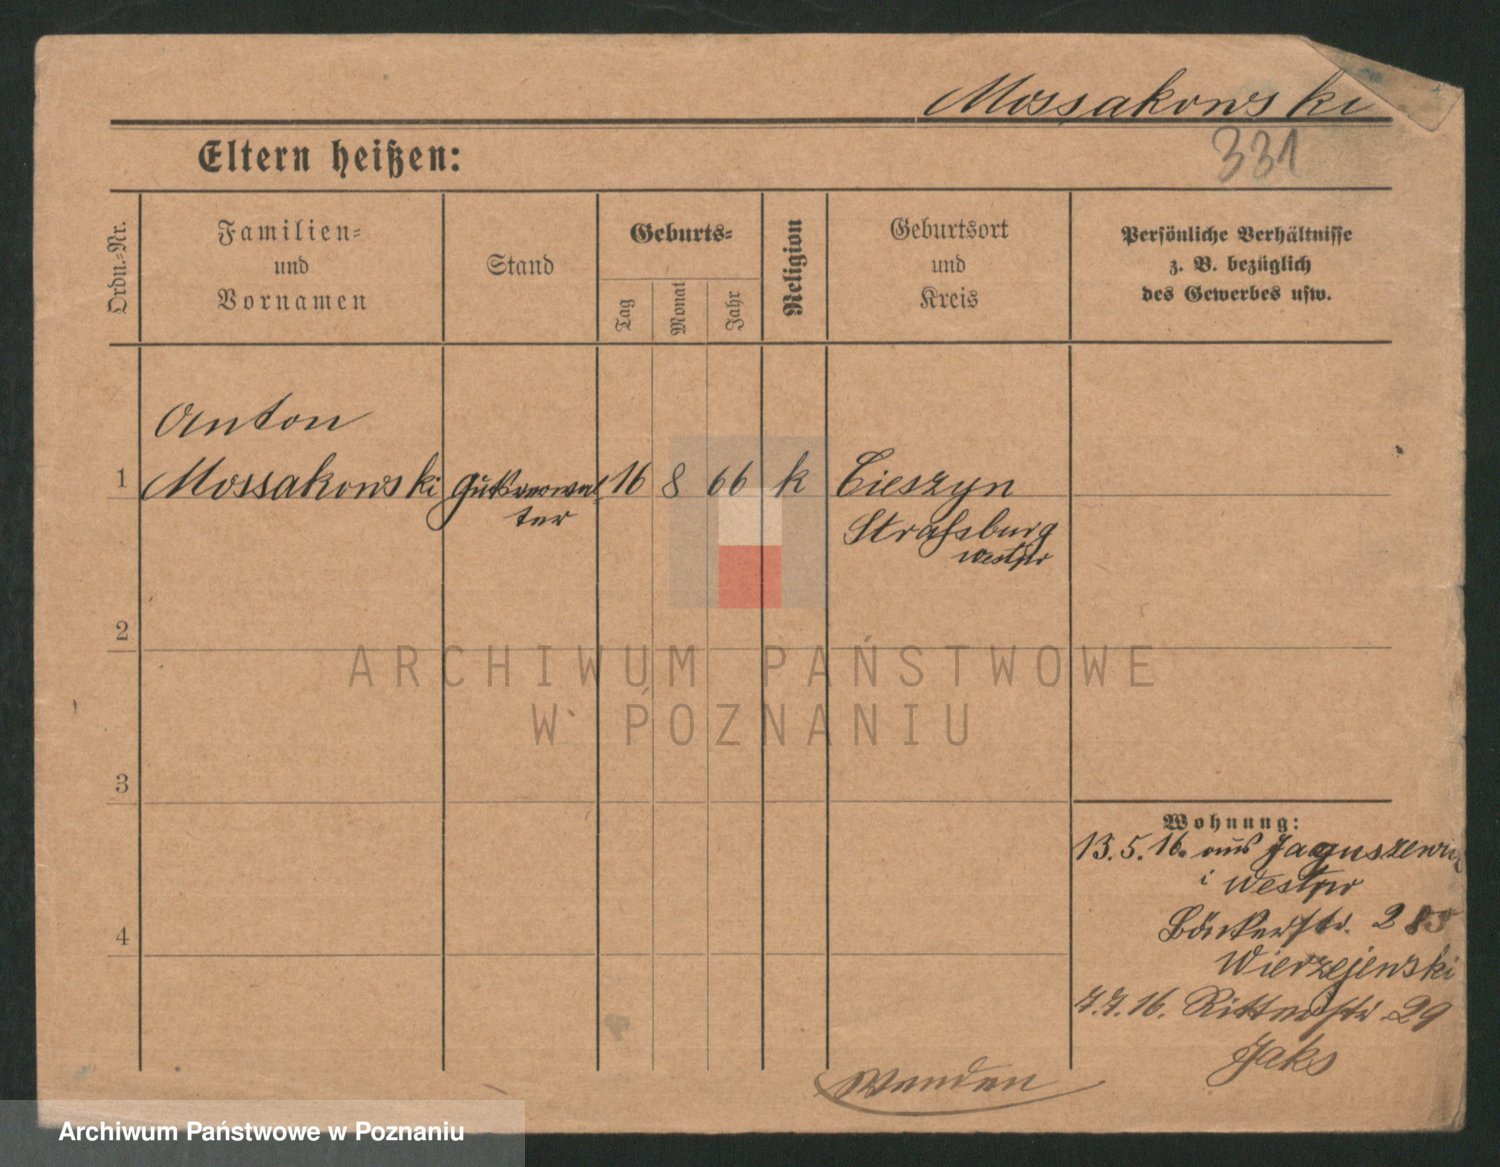 Mossakowski
331
Eltern heißen:
Ordn.-Nr.
Familien-
und
Vornamen
Stand
Geburts-
Tag
Monat
Jahr
Religion
Geburtsort
und
Kreis
Persönliche Verhältnisse
z. B. bezüglich
des Gewerbes usw.
Anton
1 Mossakowski Gutsverwal 16 8 66 k Cieszyn
ter Strassburg
Westpr
2
3
4
Wohnung:
13.5.16. aus
i Westpr
Bäckerstr. 2
Wierzejewski
7.7.16. Ritterstr. 29
Jaks
Wenden
ARCHIWUM PAŃSTWOWE
W POZNANIU
Archiwum Państwowe w Poznaniu